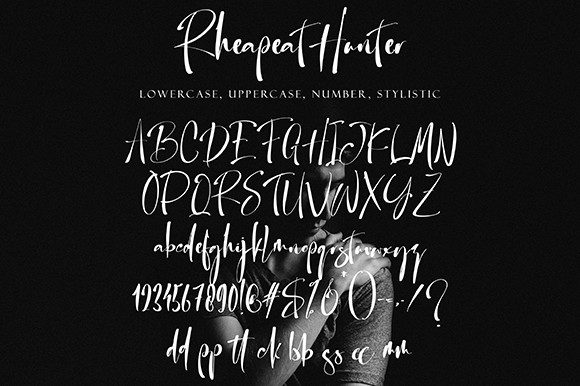 Rheapeat Hunter
LOWERCASE, UPPERCASE, NUMBER, STYLISTIC
ABCDEFGHIJKLMN
OPQRSTUVWXYZ
abcdefghijklmnopqrstuvwxyz
1234567890!@#$%*()--.:/?
dd pp tt ck bb gs cc mm